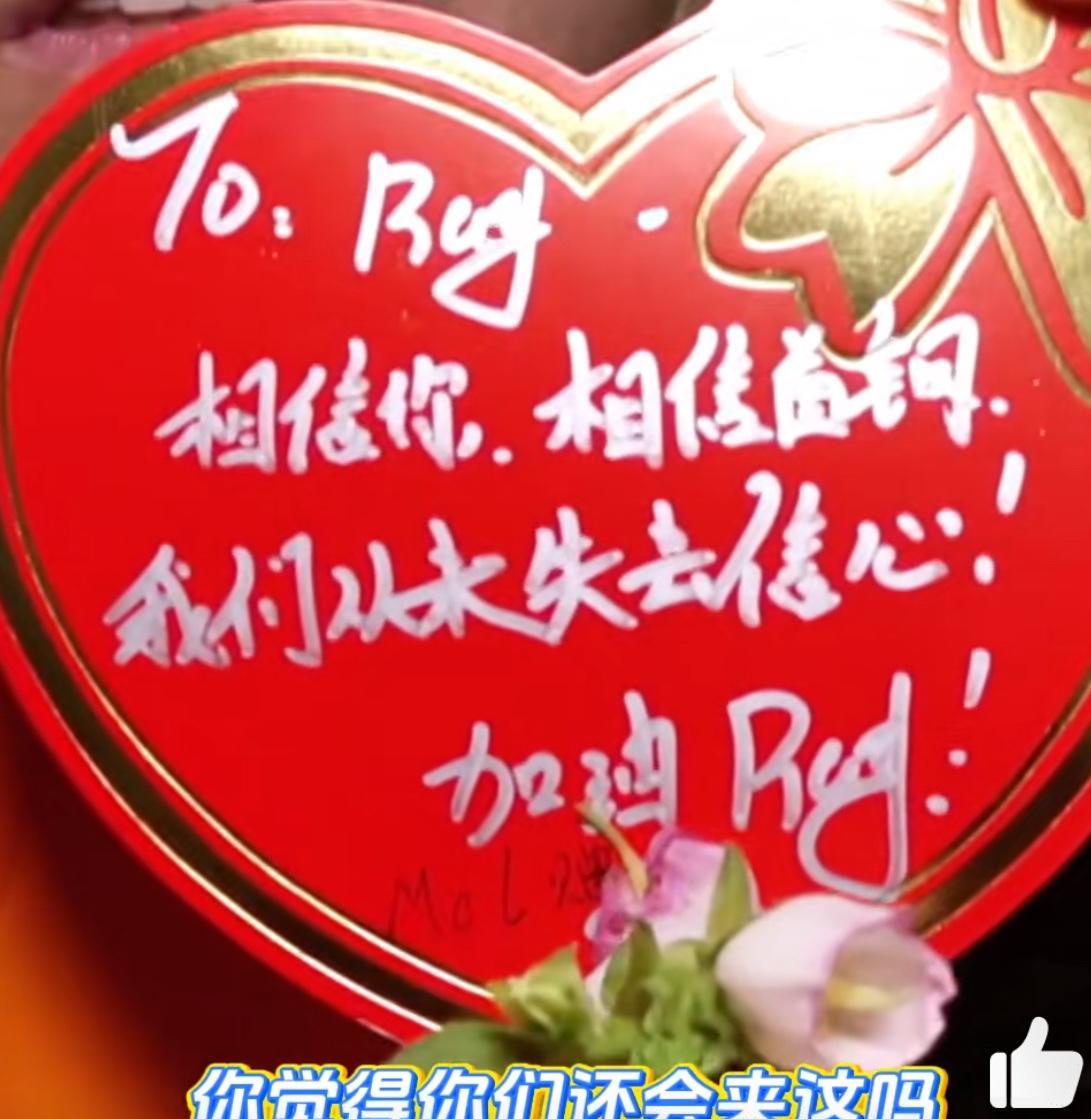 To: Ray.
相信你. 相信首钢.
我们从未失去信心!
加油 Ray!
你觉得你们还会来这吗